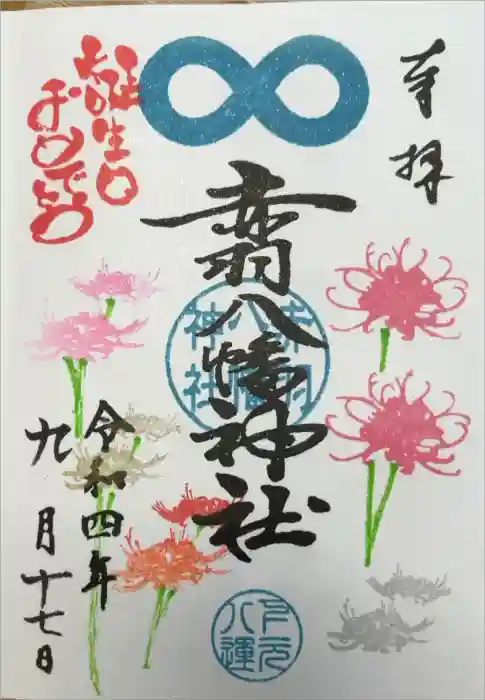 奉拝
赤羽八幡神社
赤羽
八幡
神社
お誕生日
おめでとう
令和四年
九月十七日